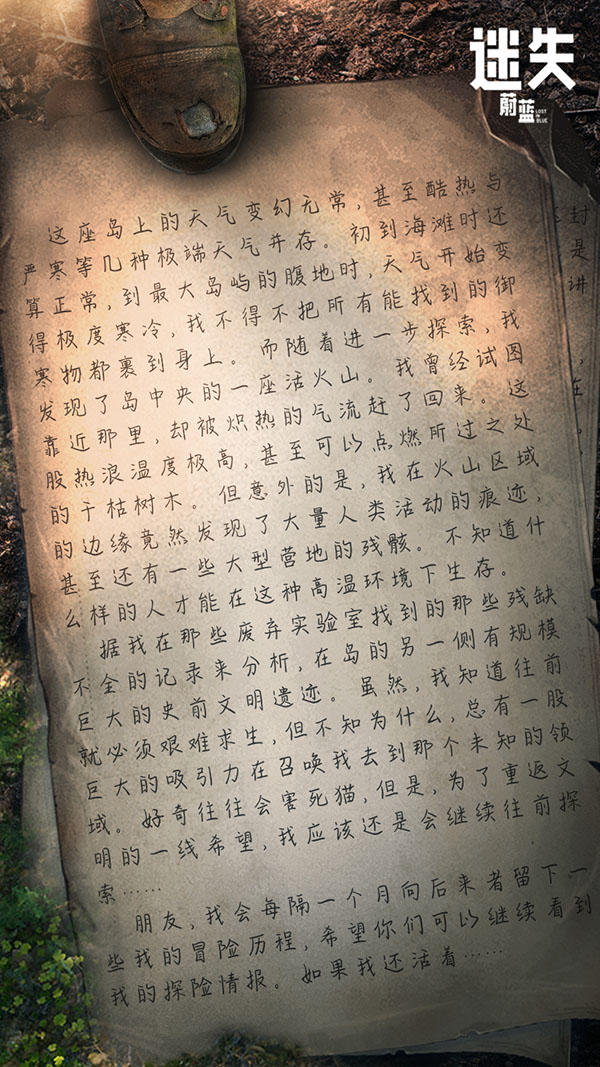 迷失
蔚蓝
LOST
IN
BLUE
这座岛上的天气变幻无常，甚至酷热与
严寒等几种极端天气并存。初到海滩时还
算正常，到最大岛屿的腹地时，天气开始变
得极度寒冷，我不得不把所有能找到的御
寒物都裹到身上。而随着进一步探索，我
发现了岛中央的一座活火山。我曾经试图
靠近那里，却被炽热的气流赶了回来。这
股热浪温度极高，甚至可以点燃所过之处
的干枯树木。但意外的是，我在火山区域
的边缘竟然发现了大量人类活动的痕迹，
甚至还有一些大型营地的残骸。不知道什
么样的人才能在这种高温环境下生存。
据我在那些废弃实验室找到的那些残缺
不全的记录来分析，在岛的另一侧有规模
巨大的史前文明遗迹。虽然，我知道往前
就必须艰难求生，但不知为什么，总有一股
巨大的吸引力在召唤我去到那个未知的领
域。好奇往往会害死猫，但是，为了重返文
明的一线希望，我应该还是会继续往前探
索……
朋友，我会每隔一个月向后来者留下一
些我的冒险历程，希望你们可以继续看到
我的探险情报。如果我还活着……
封
是
讲
在